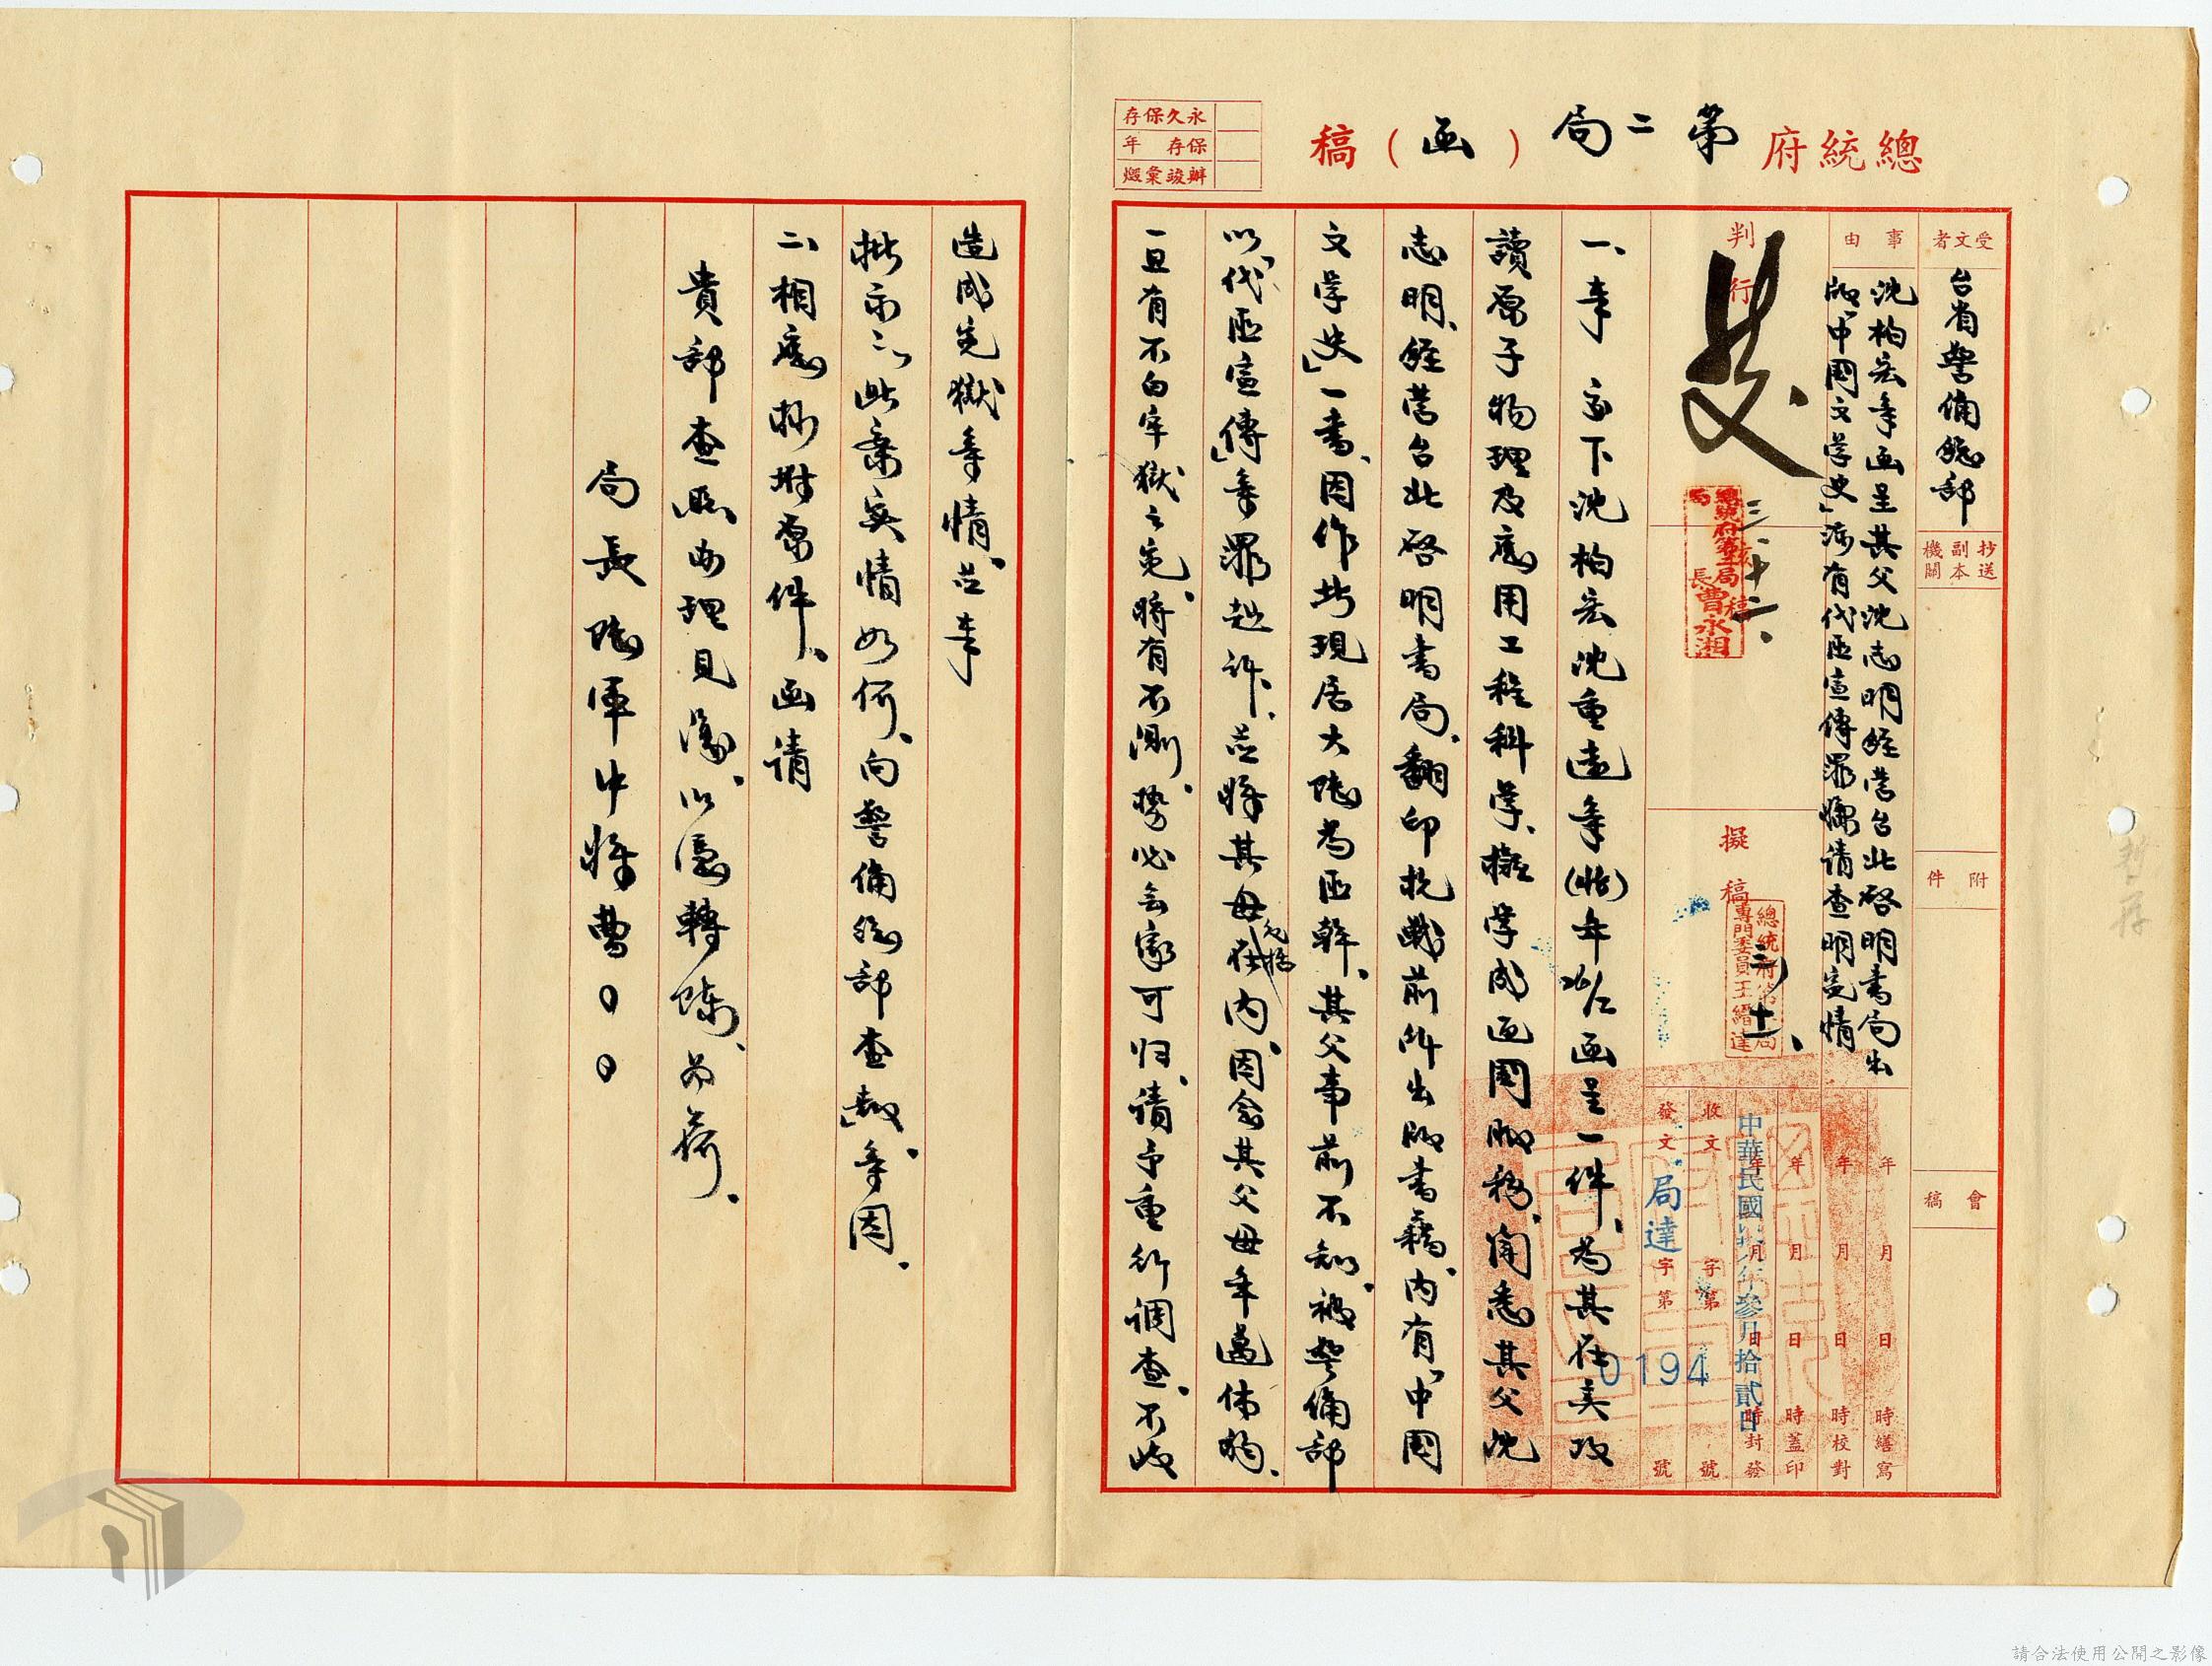 總統府第二局（函）稿
永久保存
保存　年
辦竣彙燬
受文者
台省警備總部
抄送副本機關
附件
會稿
事由
沈柏宏等函呈其父沈志明經營台北啓明書局出
版「中國文学史」涉有代匪宣傳罪嫌請查明寃情
年　月　日　時繕寫
年　月　日　時校對
年　月　日　時蓋印
年　月　日　時封發
中華民國　年參月拾貳日
判行
發
三、十二、
總統府第二局局長曹永湘
核稿
擬稿
總統府第二局專門委員王縉達
三、十一、
收文　字第　號
發文局達字第0194號
一、奉　交下沈柏宏沈重遠等(48)年　函呈一件、為其在美攻
讀原子物理及應用工程科学、擬学成返國服務、閱悉其父沈
志明、經營台北啓明書局、翻印抗戰前所出版書籍、內有「中國
文学史」一書、因作者現居大陸為匪幹、其父事前不知、被警備部
以「代匪宣傳」等罪起訴、並將其母包括在內、因念其父母年邁体弱、
一旦有不白牢獄之寃、將有不測、勢必無家可归、請予重行調查、不致
造成寃獄等情、並奉
批示「以此案实情如何、向警備總部查報」等因、
二、相應抄附原件、函請
貴部查照辦理見復、以憑轉陳、為荷、
局長陸軍中將曹○○
暫存
請合法使用公開之影像